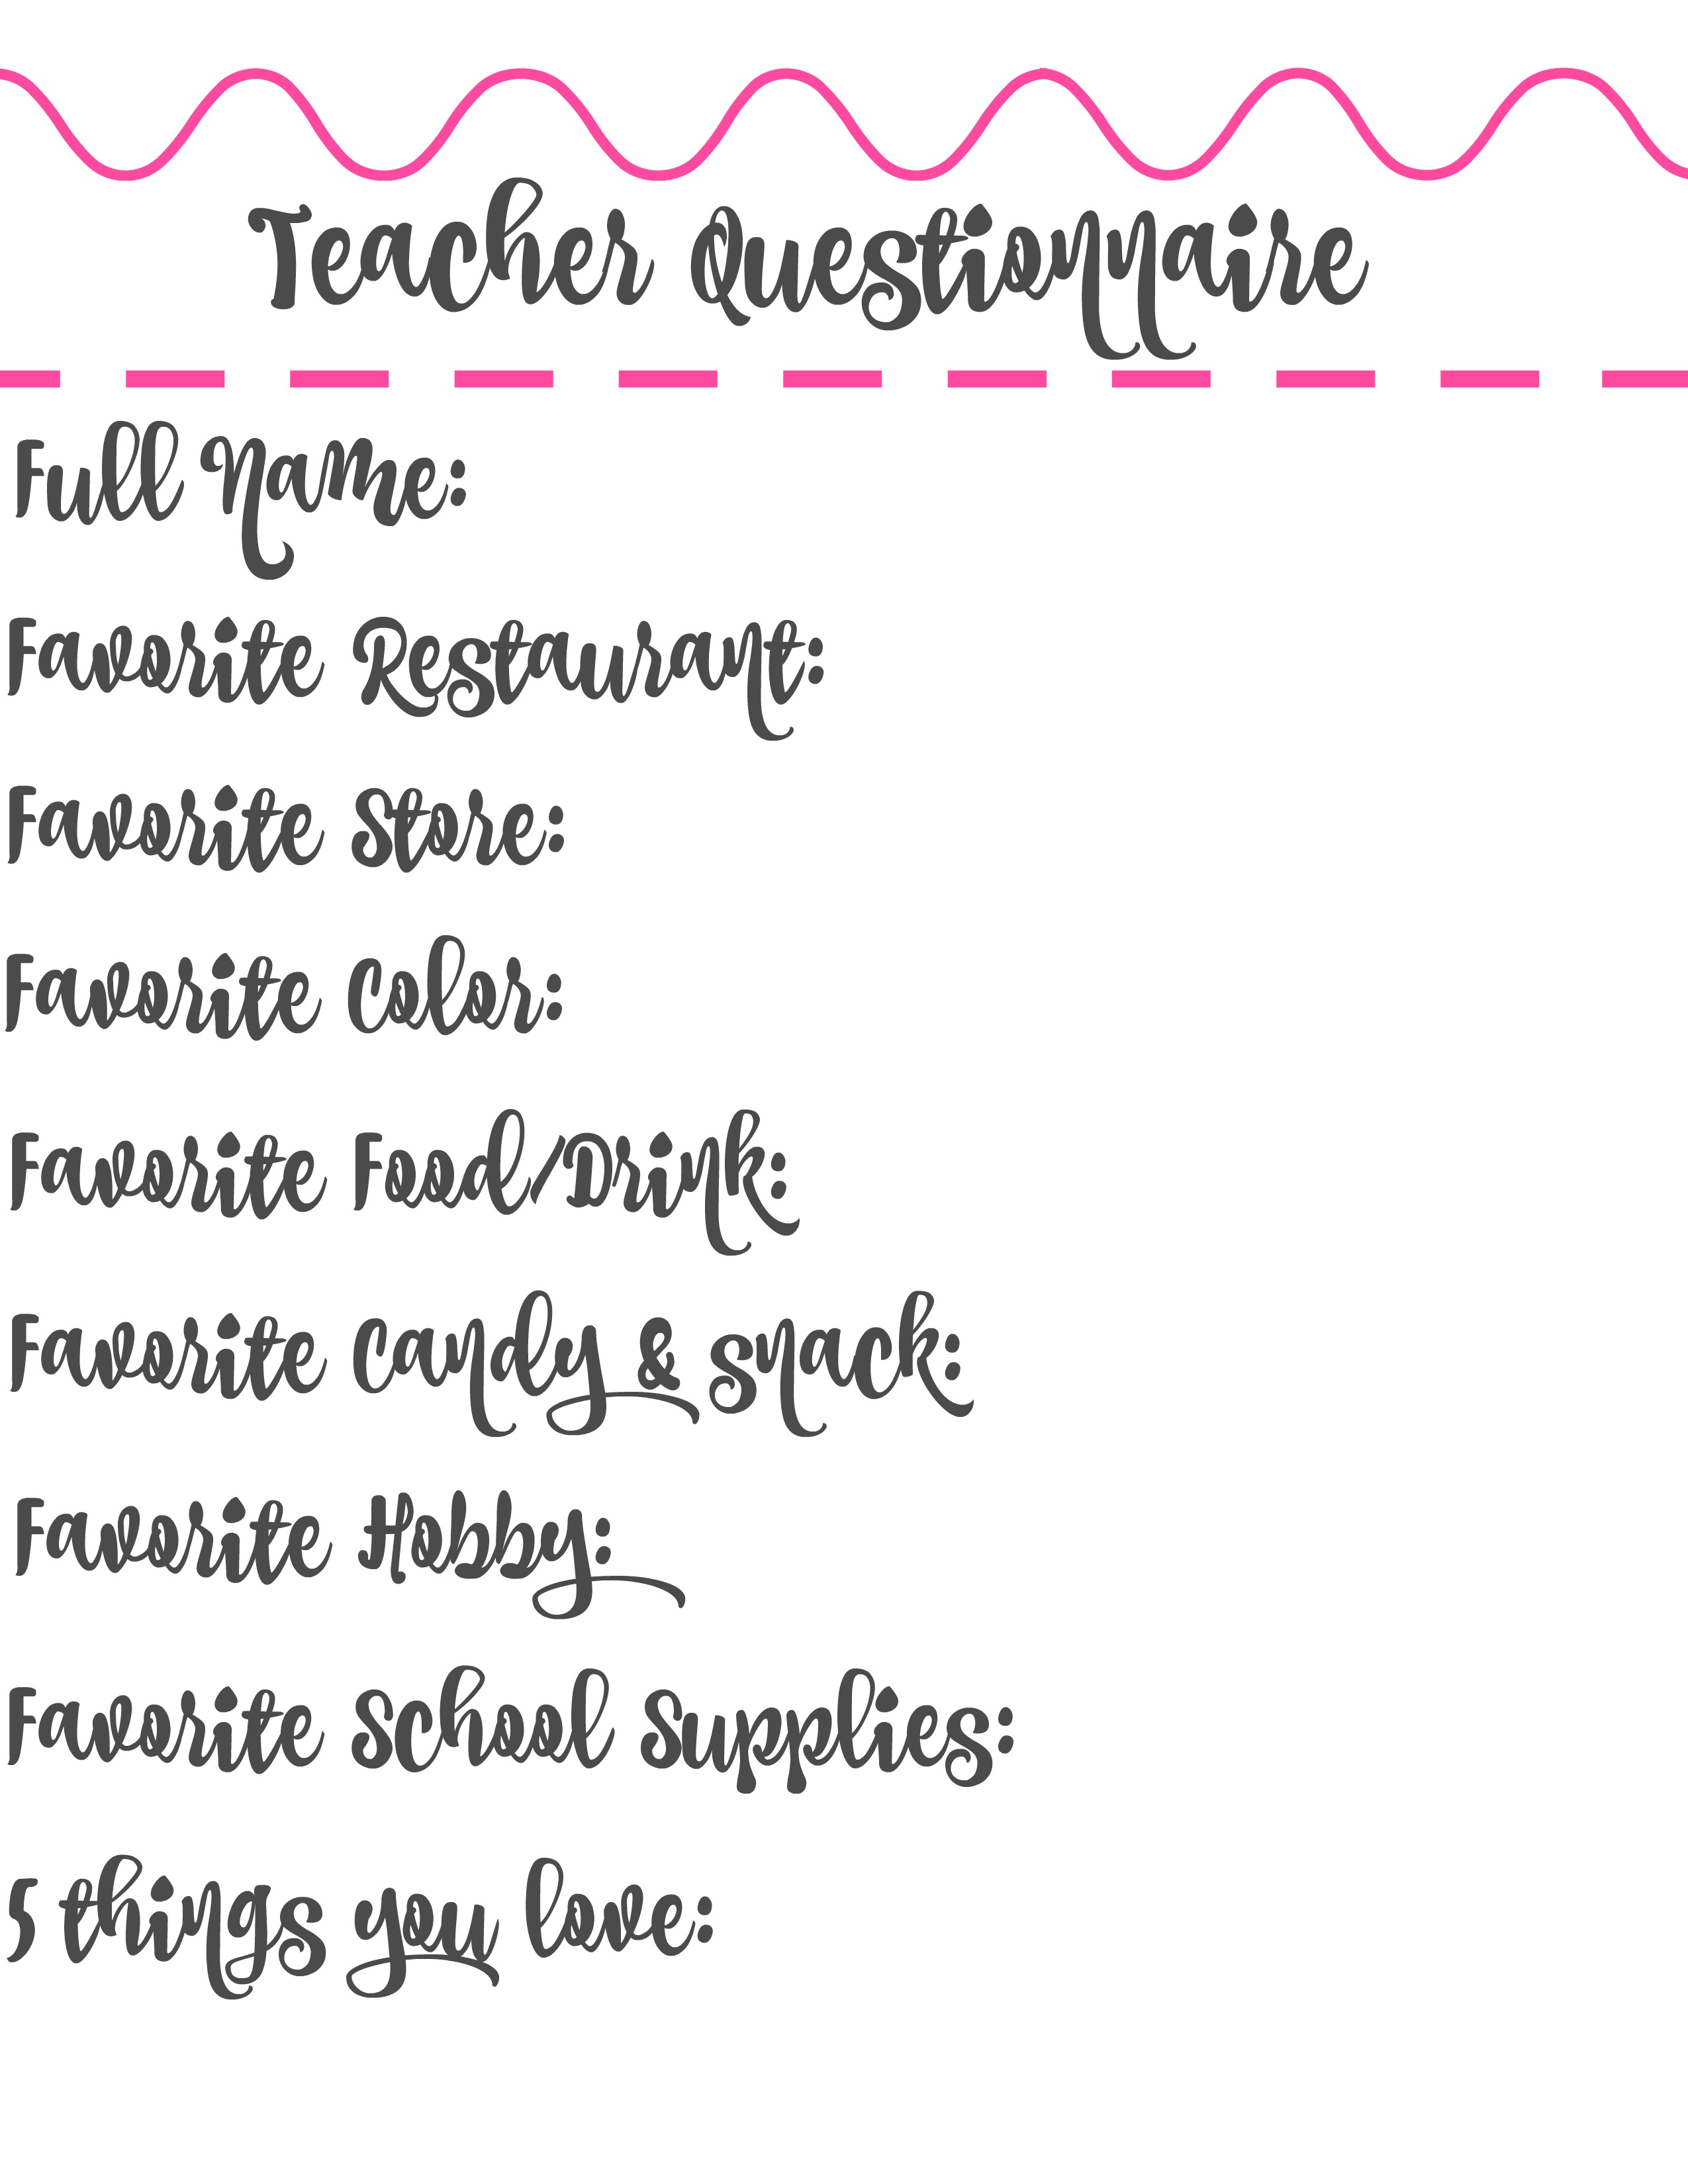 Teacher Questionnaire
Full Name:
Favorite Restaurant:
Favorite Store:
Favorite Color:
Favorite Food/Drink:
Favorite Candy & Snack:
Favorite Hobby:
Favorite School Supplies:
5 things you love: